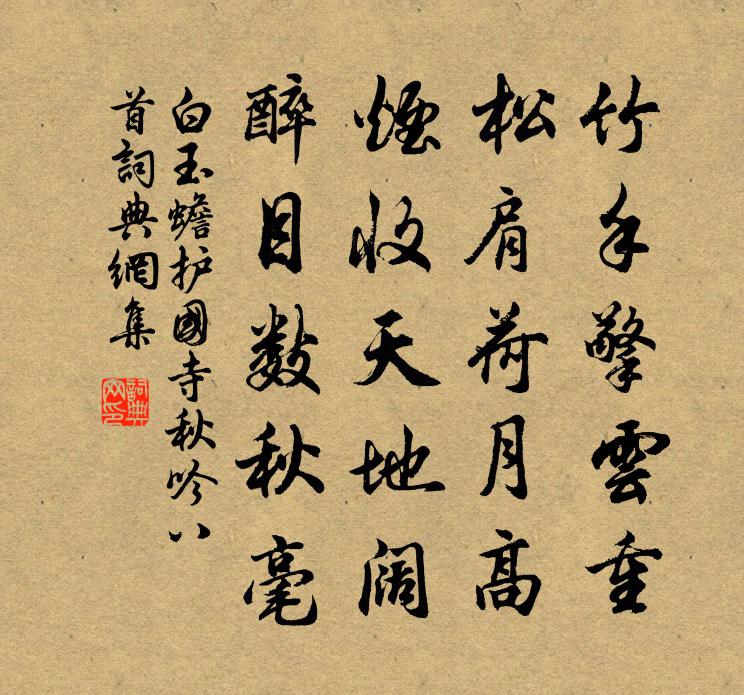 竹手擎雲重
松肩荷月高
煙收天地闊
醉目數秋毫
白玉蟾护國寺秋吟八
首詞典網集
詞典
網印